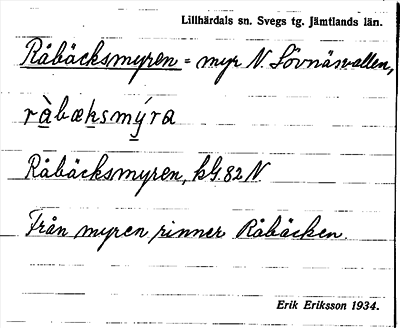 Lillhärdals sn. Svegs tg. Jämtlands län.
Råbäcksmyren = myr N. Lövnäsvallen,
ràbæksmýra
Råbäcksmyren, kbl. 82 N
Från myren rinner Råbäcken.
Erik Eriksson 1934.